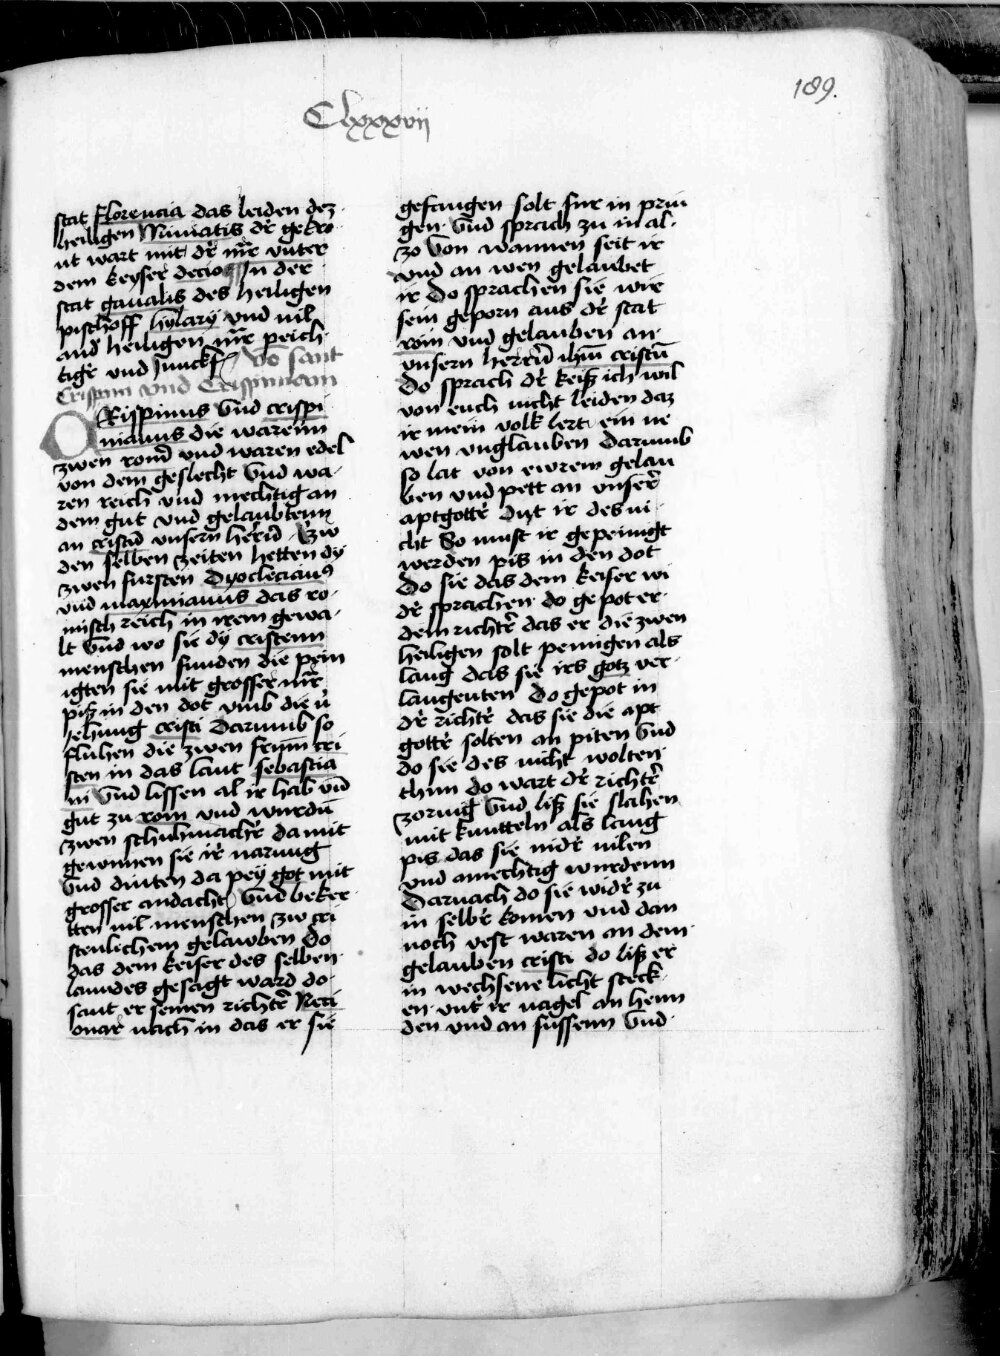 189.
Clxxxvii
stat florencia das leiden dez
heiligen Miniatis dˀ gekro
nt wart mit dˀ mr̄ vnter
dem keysˀ decio In der
stat gaualis des heiligen
pischoff hylary vnd uil
andˀ heiligen mr̄ peich
tigˀ vnd Junckf Vō sant
Crispim vnd Crispiniam
CRispinus vnd crispi
nianus die warenn
zwen romˀ vnd waren edel
von dem geslecht vnd wa
ren reich vnd mechtig an
dem gut vnd gelaubtenn
an cristū vnsern herrˀn Zw
den selben zeiten hetten dy
zwen fursten Dyocleciauꝰ
vnd maximianus das ro
misch reich in irem gewa
lt vnd wo sie dy cristenn
menschen funden die pein
igten sie mit grosser mr̄
piß in den dot vmb die ů
iehung cristi Darumb so
fluhen die zwen frum cri
sten in das lant sebastia
ni vnd lissen al ir hab vnd
gut zu rom vnd wurdū
zwen schuhmachˀ da mit
gewunen sie ir narung
vnd dinten da pey got mit
grosser andacht vnd beker
tten uil menschen zw cri
stenlichem gelawben Do
das dem keiser des selben
lanndes gesagt ward do
sant er seinen richtˀ Recti
onar nach in das er sie
gefangen solt fur in prin
gen vnd sprach zu in al
zo Von wannen seit ir
vnd an wen gelaubet
ir Do sprachen sie wir
sein geporn aus dˀ stat
rom vnd gelauben an
vnsern herrˀn ihm̄ cristū
Do sprach dˀ keiß ich wil
von euch nicht leiden daz
ir mein volk lert ein ne
wen vnglauben Darumb
so lat von ewrem gelau
ben vnd pett an vnserˀ
aptgottˀ Dut ir des ni
cht So must ir gepeinigt
werden pis in den dot
Do sie das dem keiser wi
dˀ sprachen do gepot er
dem richtˀ das er die zwen
heiligen solt peinigen als
lang das sie irs gotz ver
laugenten Do gepot in
dˀ richtˀ das sie die apt
gottˀ solten an piten vnd
do sie des nicht wolten
thun do wart dˀ richtˀ
zornig vnd liß sie slahen
mit knutteln als lang
pis das sie nidˀ uilen
vnd amechtig wurdenn
Darnach do sie widˀ zu
in selbˀ komen vnd dan
noch vest waren an dem
gelauben cristi do liß er
in wechsene licht steck
en vntˀ ir nagel an henn
den vnd an fussenn vnd